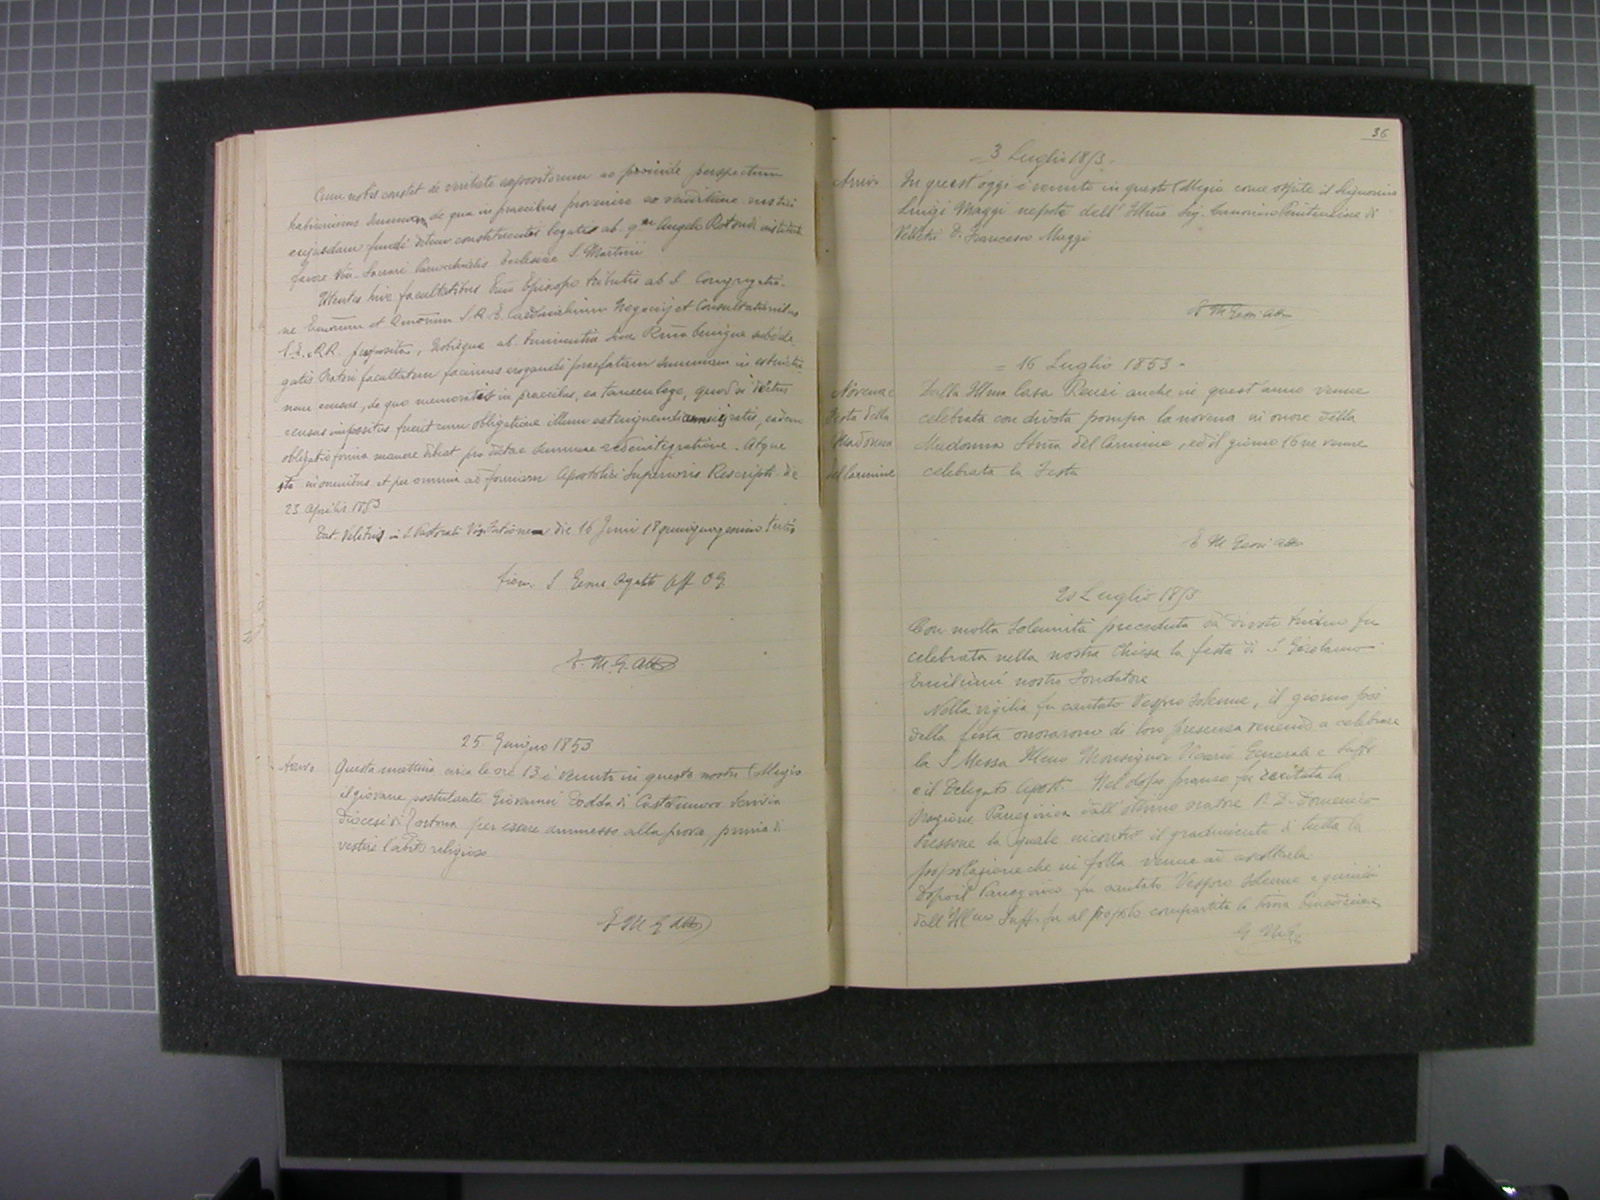 Cum nobis constet de veritate expositorum ac proinde perspectum
habuerimus summam de qua in precibus provenire ex venditione
cujusdam fundi legatis ab qm Angelo Rotondi
favore Ecclesiae S. Martini
facultatibus Episcopo tributis ab S. Congregatio-
ne Emorum et Rmorum S. R. E. Cardinalium Negociis et Consultationibus
E.E. RR. praeposita, ab Eminentia Sua Rma benigne subdele
gatis Oratori facultatem facimus erogandi praefatam summam in
censu, de quo in precibus, ea tamen lege, quod si dictus
census impositus fuerit cum obligatione illum extinguendi, eadem
obligatio firma manere debeat pro dictae summae redintegratione. Atque
ita in omnibus et per omnia ad formam Apostolici Superioris Rescripti die
23 Aprilis 1853
Dat. Velitris in S. Pastorali Visitatione die 16 Junii 18 quinquagesimo tertio
E. M. G. Atto
25 Giugno 1853
Arrivo
Questa mattina circa le ore 13 è venuto in questo nostro Collegio
il giovane postulante Giovanni Codda di Castelnuovo Scrivia
diocesi di Tortona per essere ammesso alla prova prima di
vestire l'abito religioso
E M G Atto
36
3 Luglio 1853.
Arrivo
In quest'oggi è venuto in questo Collegio come ospite il Signorino
Luigi Maggi nepote dell'Illmo Sig. Canonico Penitenziere di
Velletri D. Francesco Maggi
= 16 Luglio 1853 -
Novena e
Festa della
Madonna
del Carmine
Dalla Illma Casa anche in quest'anno venne
celebrata con divota pompa la novena in onore della
Madonna SSma del Carmine, ed il giorno 16 ne venne
celebrata la Festa
20 Luglio 1853
Con molta Solennità preceduta da divoto triduo fu
celebrata nella nostra Chiesa la festa di S Girolamo
Emiliani nostro Fondatore
Nella vigilia fu cantato Vespro solenne, il giorno poi
della festa onorarono di loro presenza venendo a celebrare
la S. Messa Illmo Monsignor Vicario Generale e Suffr.
e il Delegato Apost. Nel dopo pranzo fu recitata la
Orazione Panegirica dall'esimio oratore P. D. Domenico
la quale incontrò il gradimento di tutta la
popolazione che in folla venne ad ascoltarla
Dopo il Panegirico fu cantato Vespro solenne e quindi
dall'Illmo Suff. fu al popolo compartita la trina Benedizione